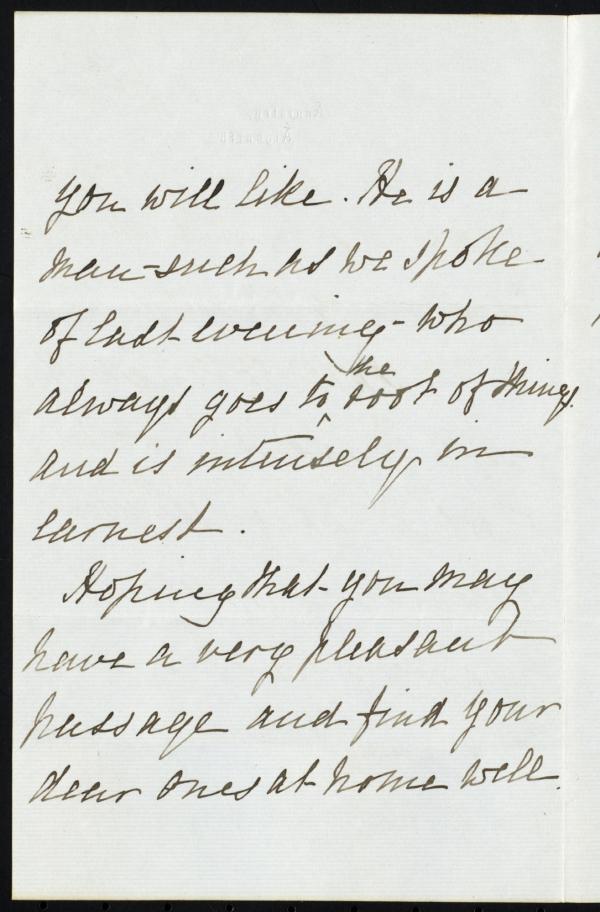 you will like. He is a
man - such as we spoke
of last evening - who
always goes to the root of things
and is intensely in
earnest.
Hoping that you may
have a very pleasant
passage and find your
dear ones at home well.